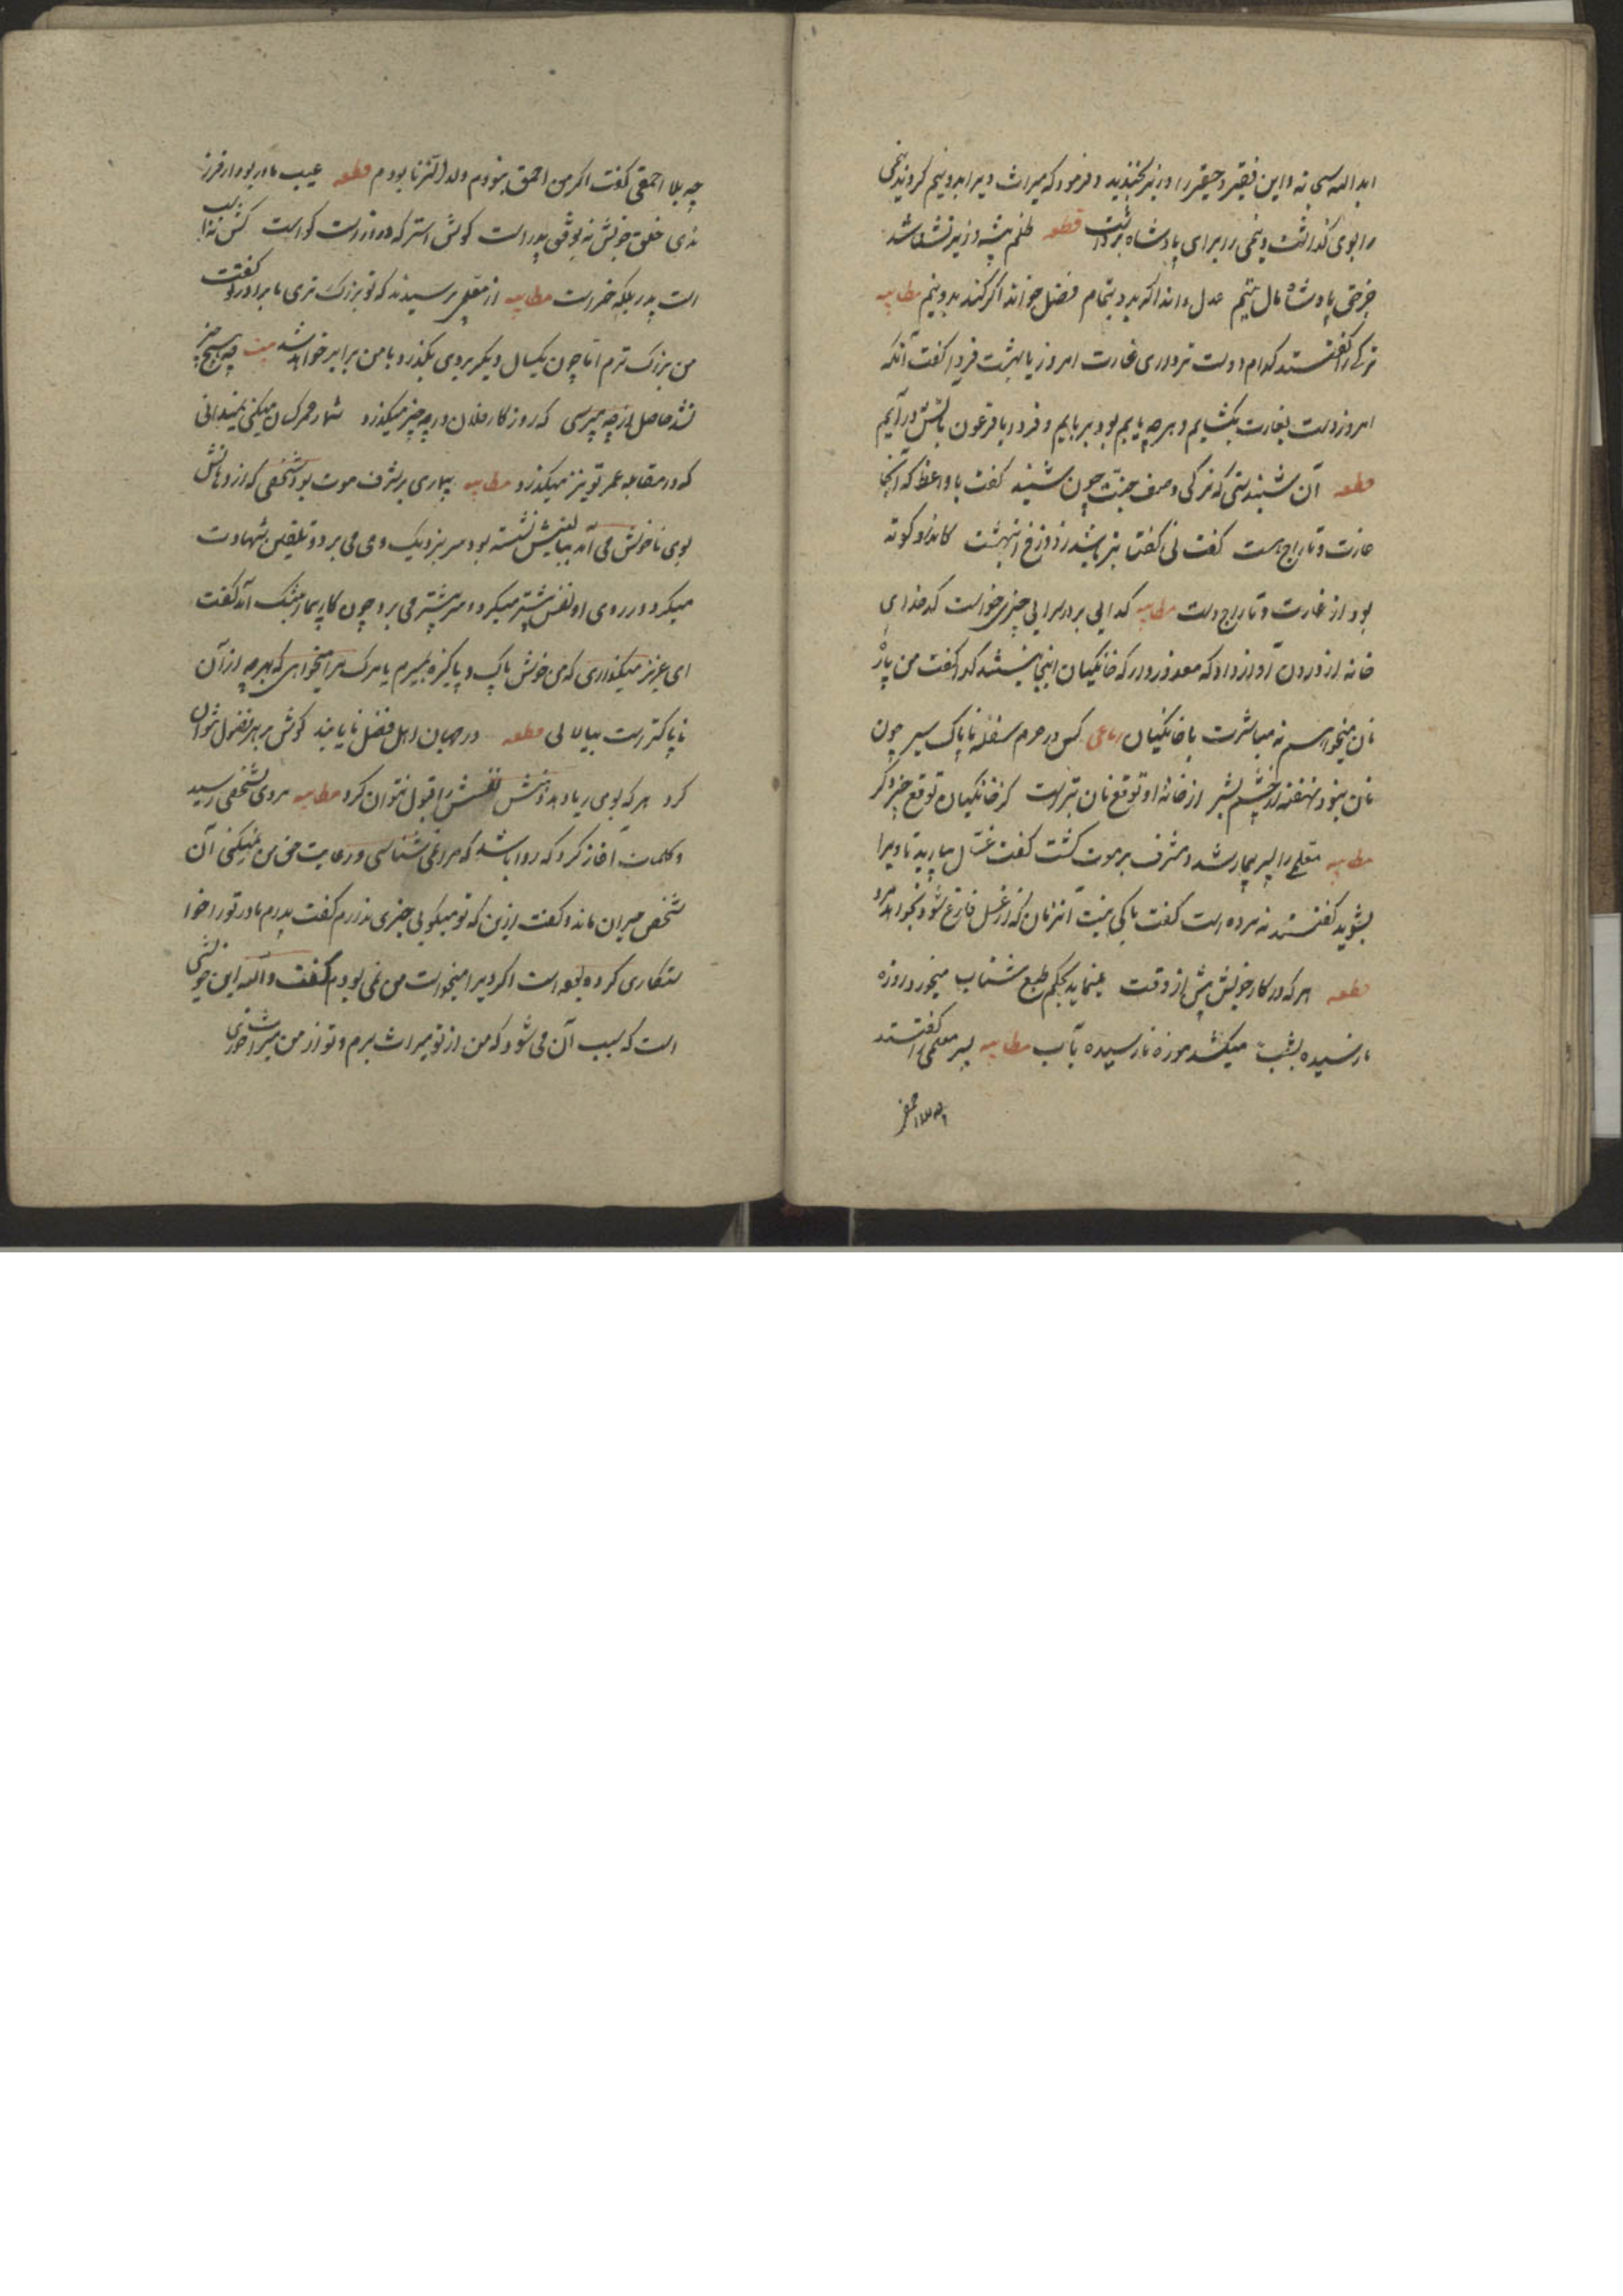 ابد الله سبحانه و این فقیر و حقیر را وزیر بخندید و فرمود که میراث ویرا بدو نیم کردند نیمی
را بوی گذاشت و نیمی را برای پادشاه برداشت قطعه ظلم پیشه وزیر نشناشد
جز حق پادشاه مال یتیم عدل داند اگر برد بتمام فضل خواند اگر کند بدو نیم مطایبه
ترکی را گفتند کدام دوست تر داری غارت امروز یا بهشت فردا گفت آنکه
امروز دست بغارت بگشایم و هر چه یابم بربایم و فردا با فرعون بآتش در آیم
قطعه آن شنیدستی که ترکی وصف جنت چون شنید گفت با واعظ که آنجا
غارت و تاراج هست گفت نی گفتا بتر باشد ز دوزخ آن بهشت کاندرو کوته
بود از غارت و تاراج دست مطایبه گدایی بر در سرایی چیزی خواست کدخدای
خانه از درون آواز داد که معذور دار که خانگیان اینجا نیستند گدا گفت من پاره
نان میخواهم نه مباشرت با خانگیان رباعی کس در حرم سفله ناپاک سیر چون
نان نبود نهفته از چشم بشر از خانه او توقع نان بتر است کز خانگیان توقع چیز دگر
مطایبه معلمی را پسر بیمار شد و مشرف بر موت گشت گفت غسال بیارید تا ویرا
بشوید گفتند نه مرده است گفت باکی نیست آنزمان که از غسل فارغ شود بخواهد مرد
قطعه هر که در کار خویش پیش از وقت مینماید بحکم طبع شتاب میخورد روزه
نارسیده بشب میکشد موزه نارسیده بآب مطایبه پسر معلمی را گفتند
چه بلا احمقی گفت اگر من احمق نبودم ولد الزنا بودم قطعه عیب مادر بود ار فرزند
نه‌ی خلق خویش نه بوفق پدر است گوش استر که دراز است گواست کش نه اسب
است پدر بلکه خر است مطایبه از معلمی پرسیدند که تو بزرگ تری یا برادرت گفت
من بزرگ ترم اما چون یکسال دیگر بر وی بگذرد با من برابر خواهد شد بیت هیچ چیز
نشد حاصل از چه میپرسی که روزگار فلان در چه چیز میگذرد شمار عمر کسان میکنی نمیدانی
که در مقابله عمر تو نیز میگذرد مطایبه بیماری بر شرف موت بود شخصی که از دهانش
بوی ناخوش می آمد ببالینش نشسته بود سر بنزدیک وی می برد و تلقین شهادت
میکرد و در روی او نفس بیشتر میکرد و سر پیشتر می برد چون کار بیمار بتنگ آمد گفت
ای عزیز میگذاری که من خوش پاک و پاکیزه بمیرم یا مرگ مرا میخواهی که بهر چه از آن
ناپاکتر است بیالایی قطعه در جهان اهل فضل نایابند گوش بر هر فضول نتوان
کرد هر که بوی ریا دهد نفسش نفسش را قبول نتوان کرد مطایبه مردی بشخصی رسید
و کلمات آغاز کرد که روا باشد که مرا نمی شناسی و رعایت حق من نمیکنی آن
شخص حیران ماند و گفت ازین که تو میگویی چیزی ندارم گفت پدرم مادر تو را خوا
ستگاری کرده بوده است اگر ویرا میخواست من تو می بودم گفت والله این خویشی
است که سبب آن می شود که من از تو میراث برم و تو از من میراث خوری